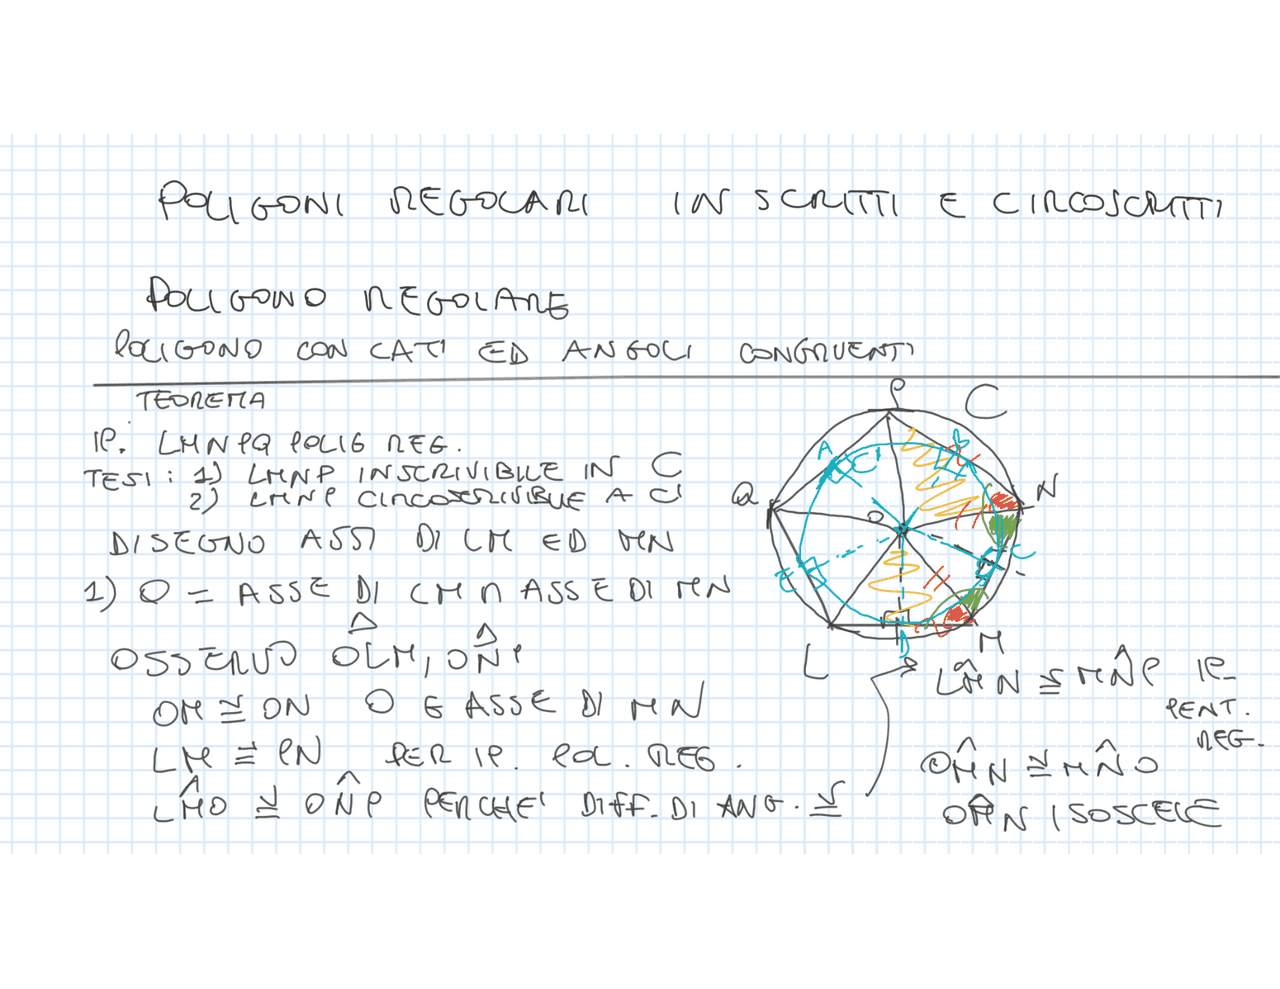 POLIGONI REGOLARI INSCRITTI E CIRCOSCRITTI
POLIGONO REGOLARE
POLIGONO CON LATI ED ANGOLI CONGRUENTI
TEOREMA
IP. LMNPQ POLIG REG.
TESI: 1) LMNP INSCRIVIBILE IN C
2) LMNP CIRCOSCRIVIBILE A C'
DISEGNO ASSI DI LM ED MN
1) O = ASSE DI LM ∩ ASSE DI MN
OSSERVO OLM, ONP
OM ≅ ON O E ASSE DI MN
LM ≅ PN PER IP. POL. REG.
LM̂O ≅ ON̂P PERCHE' DIFF. DI ANG. ≅
P
C
A
C'
B
Q
N
O
C
E
D
L
M
LM̂N ≅ MN̂P IP.
PENT.
REG.
OM̂N ≅ MN̂O
OMN ISOSCELE